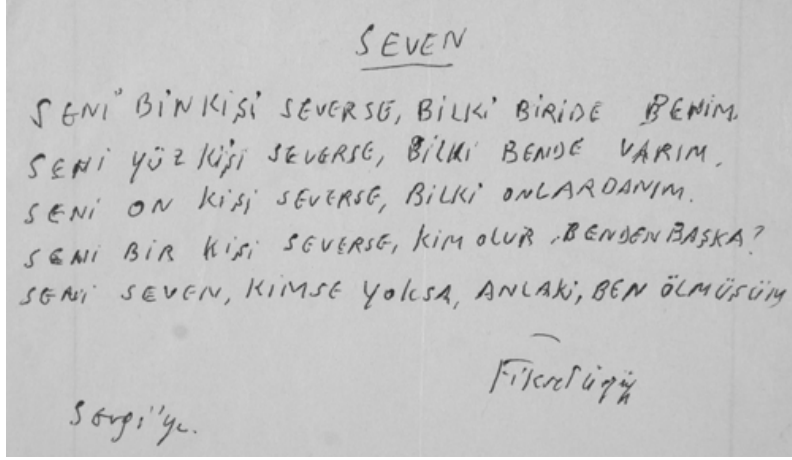 SEVEN
SENİ BİN KİŞİ SEVERSE, BİLKİ BİRİDE BENİM.
SENİ YÜZ KİŞİ SEVERSE, BİLKİ BENDE VARIM.
SENİ ON KİŞİ SEVERSE, BİLKİ ONLARDANIM.
SENİ BİR KİŞİ SEVERSE, KİM OLUR BENDEN BAŞKA?
SENİ SEVEN, KİMSE YOKSA, ANLAKİ, BEN ÖLMÜŞÜM
Fikret
Sevgi'ye.